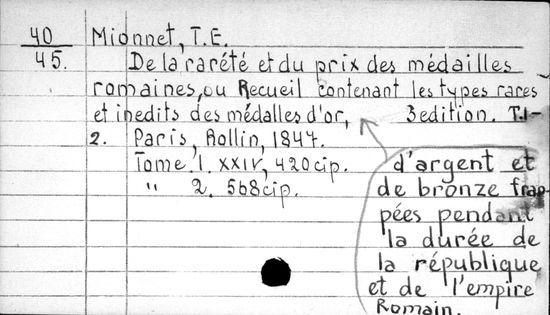 40 Mionnet, T.E.
45. De la rarété et du prix des médailles
romaines, ou Recueil contenant les types rares
et inedits des médalles d'or, 3edition. T.1-
2. Paris, Rollin, 1847.
Tome 1. XXIV, 420cip.
" 2. 568cip.
d'argent et
de bronze frap-
pées pendant
la durée de
la république
et de l'empire
Romain.